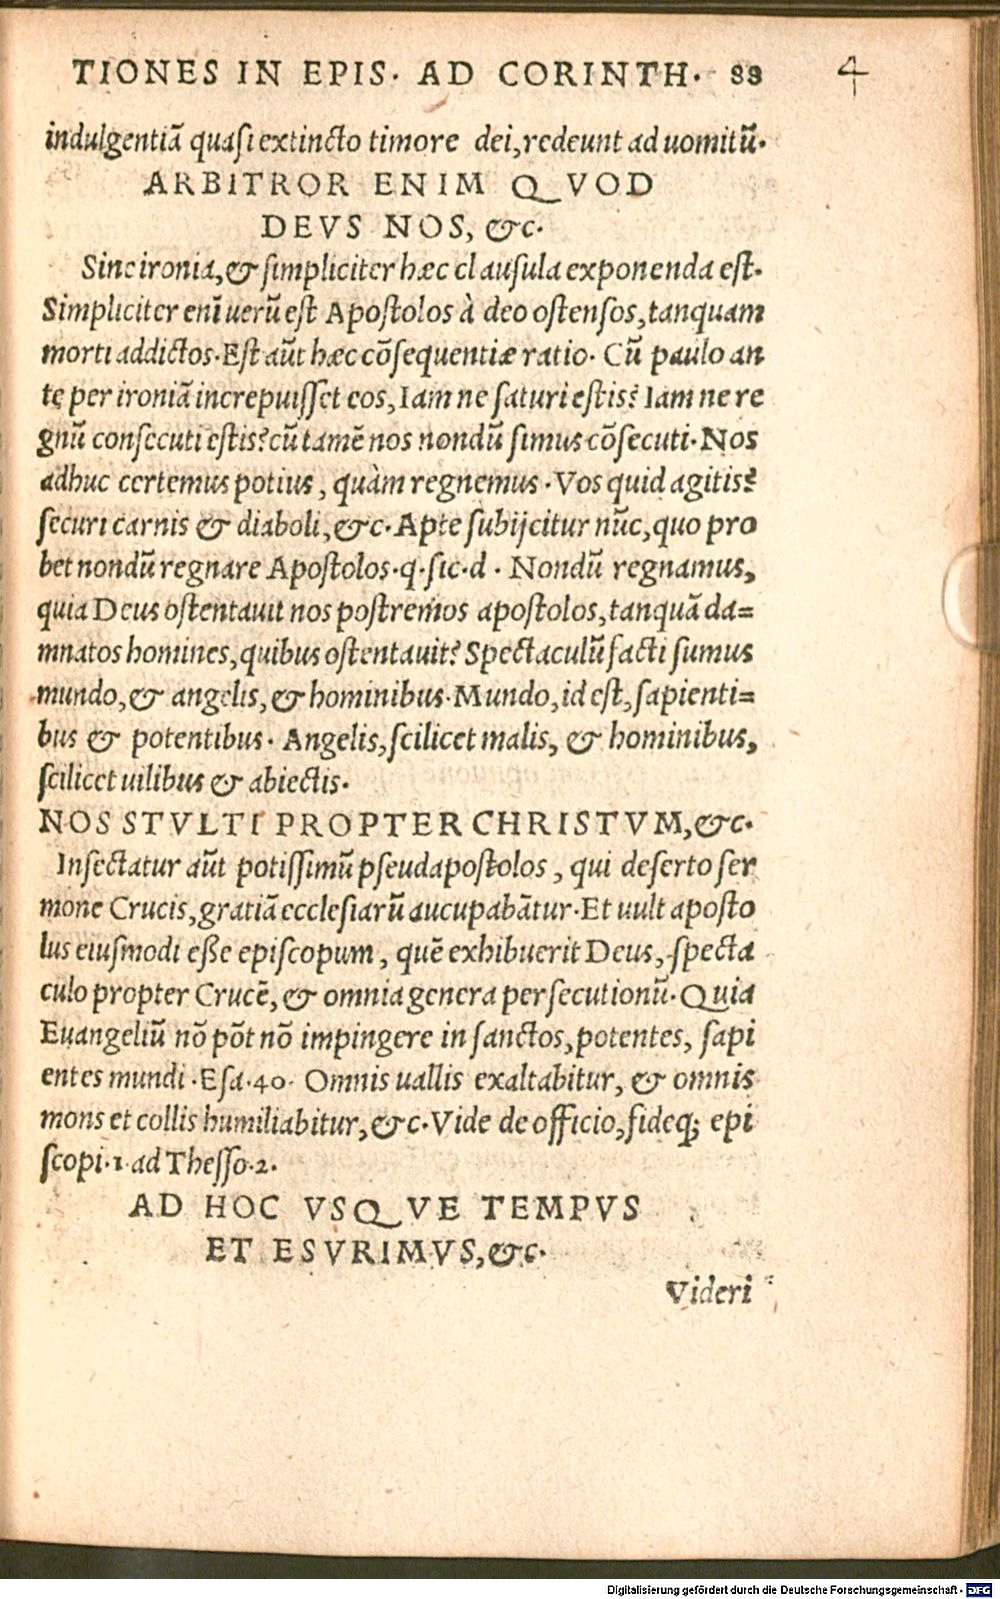 TIONES IN EPIS. AD CORINTH. 88
4
indulgentiã quasi extincto timore dei, redeunt ad uomitũ.
ARBITROR ENIM QVOD
DEVS NOS, &c.
Sine ironia, & simpliciter hæc clausula exponenda est.
Simpliciter enĩ uerũ est Apostolos à deo ostensos, tanquam
morti addictos. Est aũt hæc cõsequentiæ ratio. Cũ paulo an
te per ironiã increpuisset eos, Iam ne saturi estis? Iam ne re
gnũ consecuti estis? cũ tamẽ nos nondũ simus cõsecuti. Nos
adhuc certemus potius, quàm regnemus. Vos quid agitis?
securi carnis & diaboli, &c. Apte subijcitur nũc, quo pro
bet nondũ regnare Apostolos. q. sic. d. Nondũ regnamus,
quia Deus ostentauit nos postremos apostolos, tanquã da=
mnatos homines, quibus ostentauit? Spectaculũ facti sumus
mundo, & angelis, & hominibus. Mundo, id est, sapienti=
bus & potentibus. Angelis, scilicet malis, & hominibus,
scilicet uilibus & abiectis.
NOS STVLTI PROPTER CHRISTVM, &c.
Insectatur aũt potissimũ pseudapostolos, qui deserto ser
mone Crucis, gratiã ecclesiarũ aucupabãtur. Et uult aposto
lus eiusmodi eße episcopum, quẽ exhibuerit Deus, specta
culo propter Crucẽ, & omnia genera persecutionũ. Quia
Euangeliũ nõ põt nõ impingere in sanctos, potentes, sapi
entes mundi. Esa. 40. Omnis uallis exaltabitur, & omnis
mons et collis humiliabitur, &c. Vide de officio, fideq; epi
scopi. 1. ad Thesso. 2.
AD HOC VSQVE TEMPVS
ET ESVRIMVS, &c.
Videri
Digitalisierung gefördert durch die Deutsche Forschungsgemeinschaft - DFG